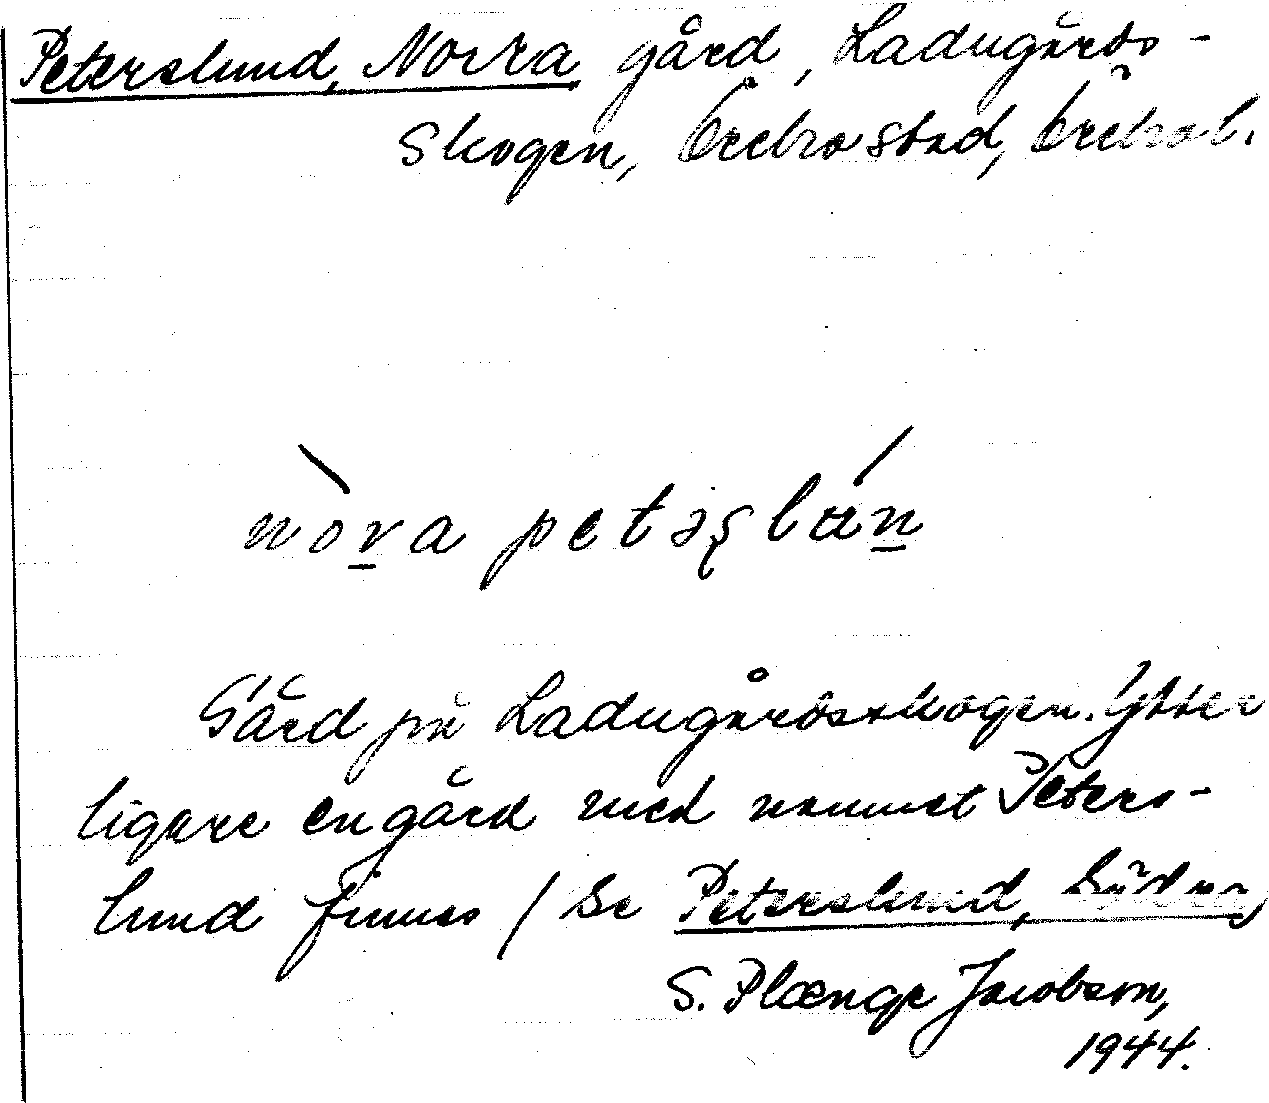 Peterslund, Norra gård, Ladugårds-
skogen, Örebro stad, Örebro l.
nòra petəʂlún
Gård på Ladugårdsskogen. Ytter
ligare en gård med namnet Peters-
lund finnes / Se Peterslund, Södra,
S. Plænge Jacobson,
1944.